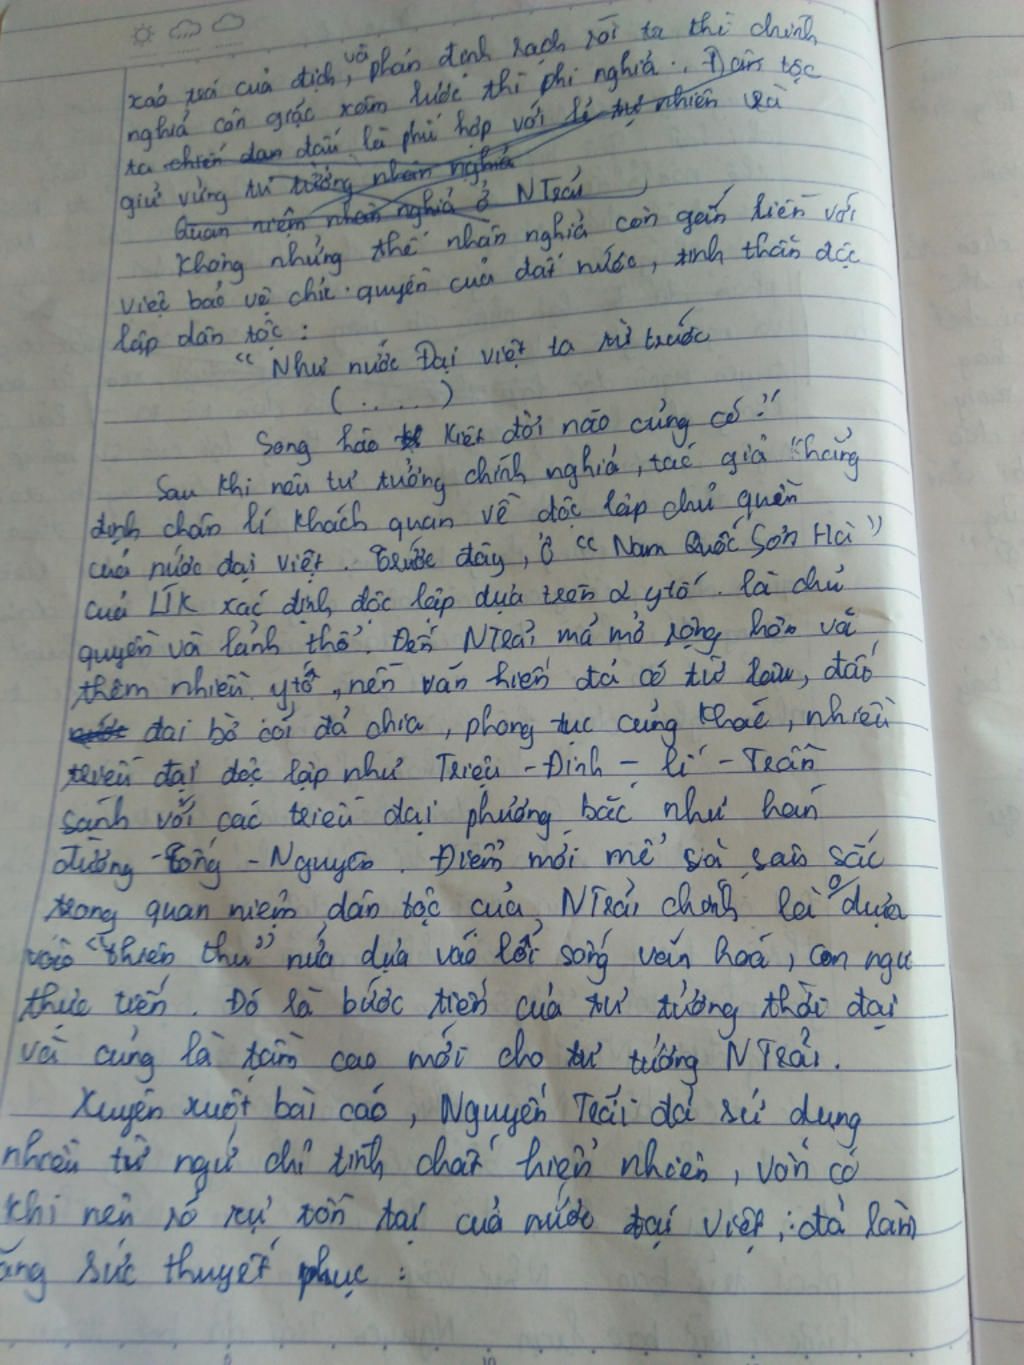 xảo trá của địch, và phân định rạch ròi ta thì chính
nghĩa còn giặc xâm lược thì phi nghĩa. Dân tộc
ta chiến đấu là phù hợp với lẽ tự nhiên và
giữ vững tư tưởng nhân nghĩa
Quan niệm nhân nghĩa ở NTrãi
Không những thế nhân nghĩa còn gắn liền với
việc bảo vệ chủ quyền của đất nước, tinh thần độc
lập dân tộc:
"Như nước Đại việt ta từ trước
(.....)
Song hào kiệt đời nào cũng có."
Sau khi nêu tư tưởng chính nghĩa, tác giả khẳng
định chân lí khách quan về độc lập chủ quền
của nước đại việt. Trước đây, ở "Nam Quốc Sơn Hà"
của LTK xác định độc lập dựa trên 2 ytố. là chủ
quyền và lảnh thổ. Đến NTrải mả mở rộng hơn và
thêm nhiều ytố, nền văn hiến đã có từ lâu, đất
đai bờ cỏi đả chia, phong tục củng khác, nhiều
triều đại độc lập như Triệu - Đinh - lí - Trần
sánh với các triều đại phương bắc như hán
đường - Tống - Nguyên. Điểm mới mẻ và sâu sắc
trong quan niệm dân tộc của NTrải chính là 0/ dựa
vào "thiên thư" nửa dựa vào lối sống văn hoá, con ngư
thực tiển. Đó là bước tiến của tư tưởng thời đại
và củng là tầm cao mới cho tư tưởng NTrải.
Xuyên xuột bài cáo, Nguyển Trải đả sử dụng
nhiều từ ngử chỉ tính chất hiển nhiên, vốn có
khi nên rỏ sự tồn tại của nước đại việt, đả làm
ăng sức thuyết phục: